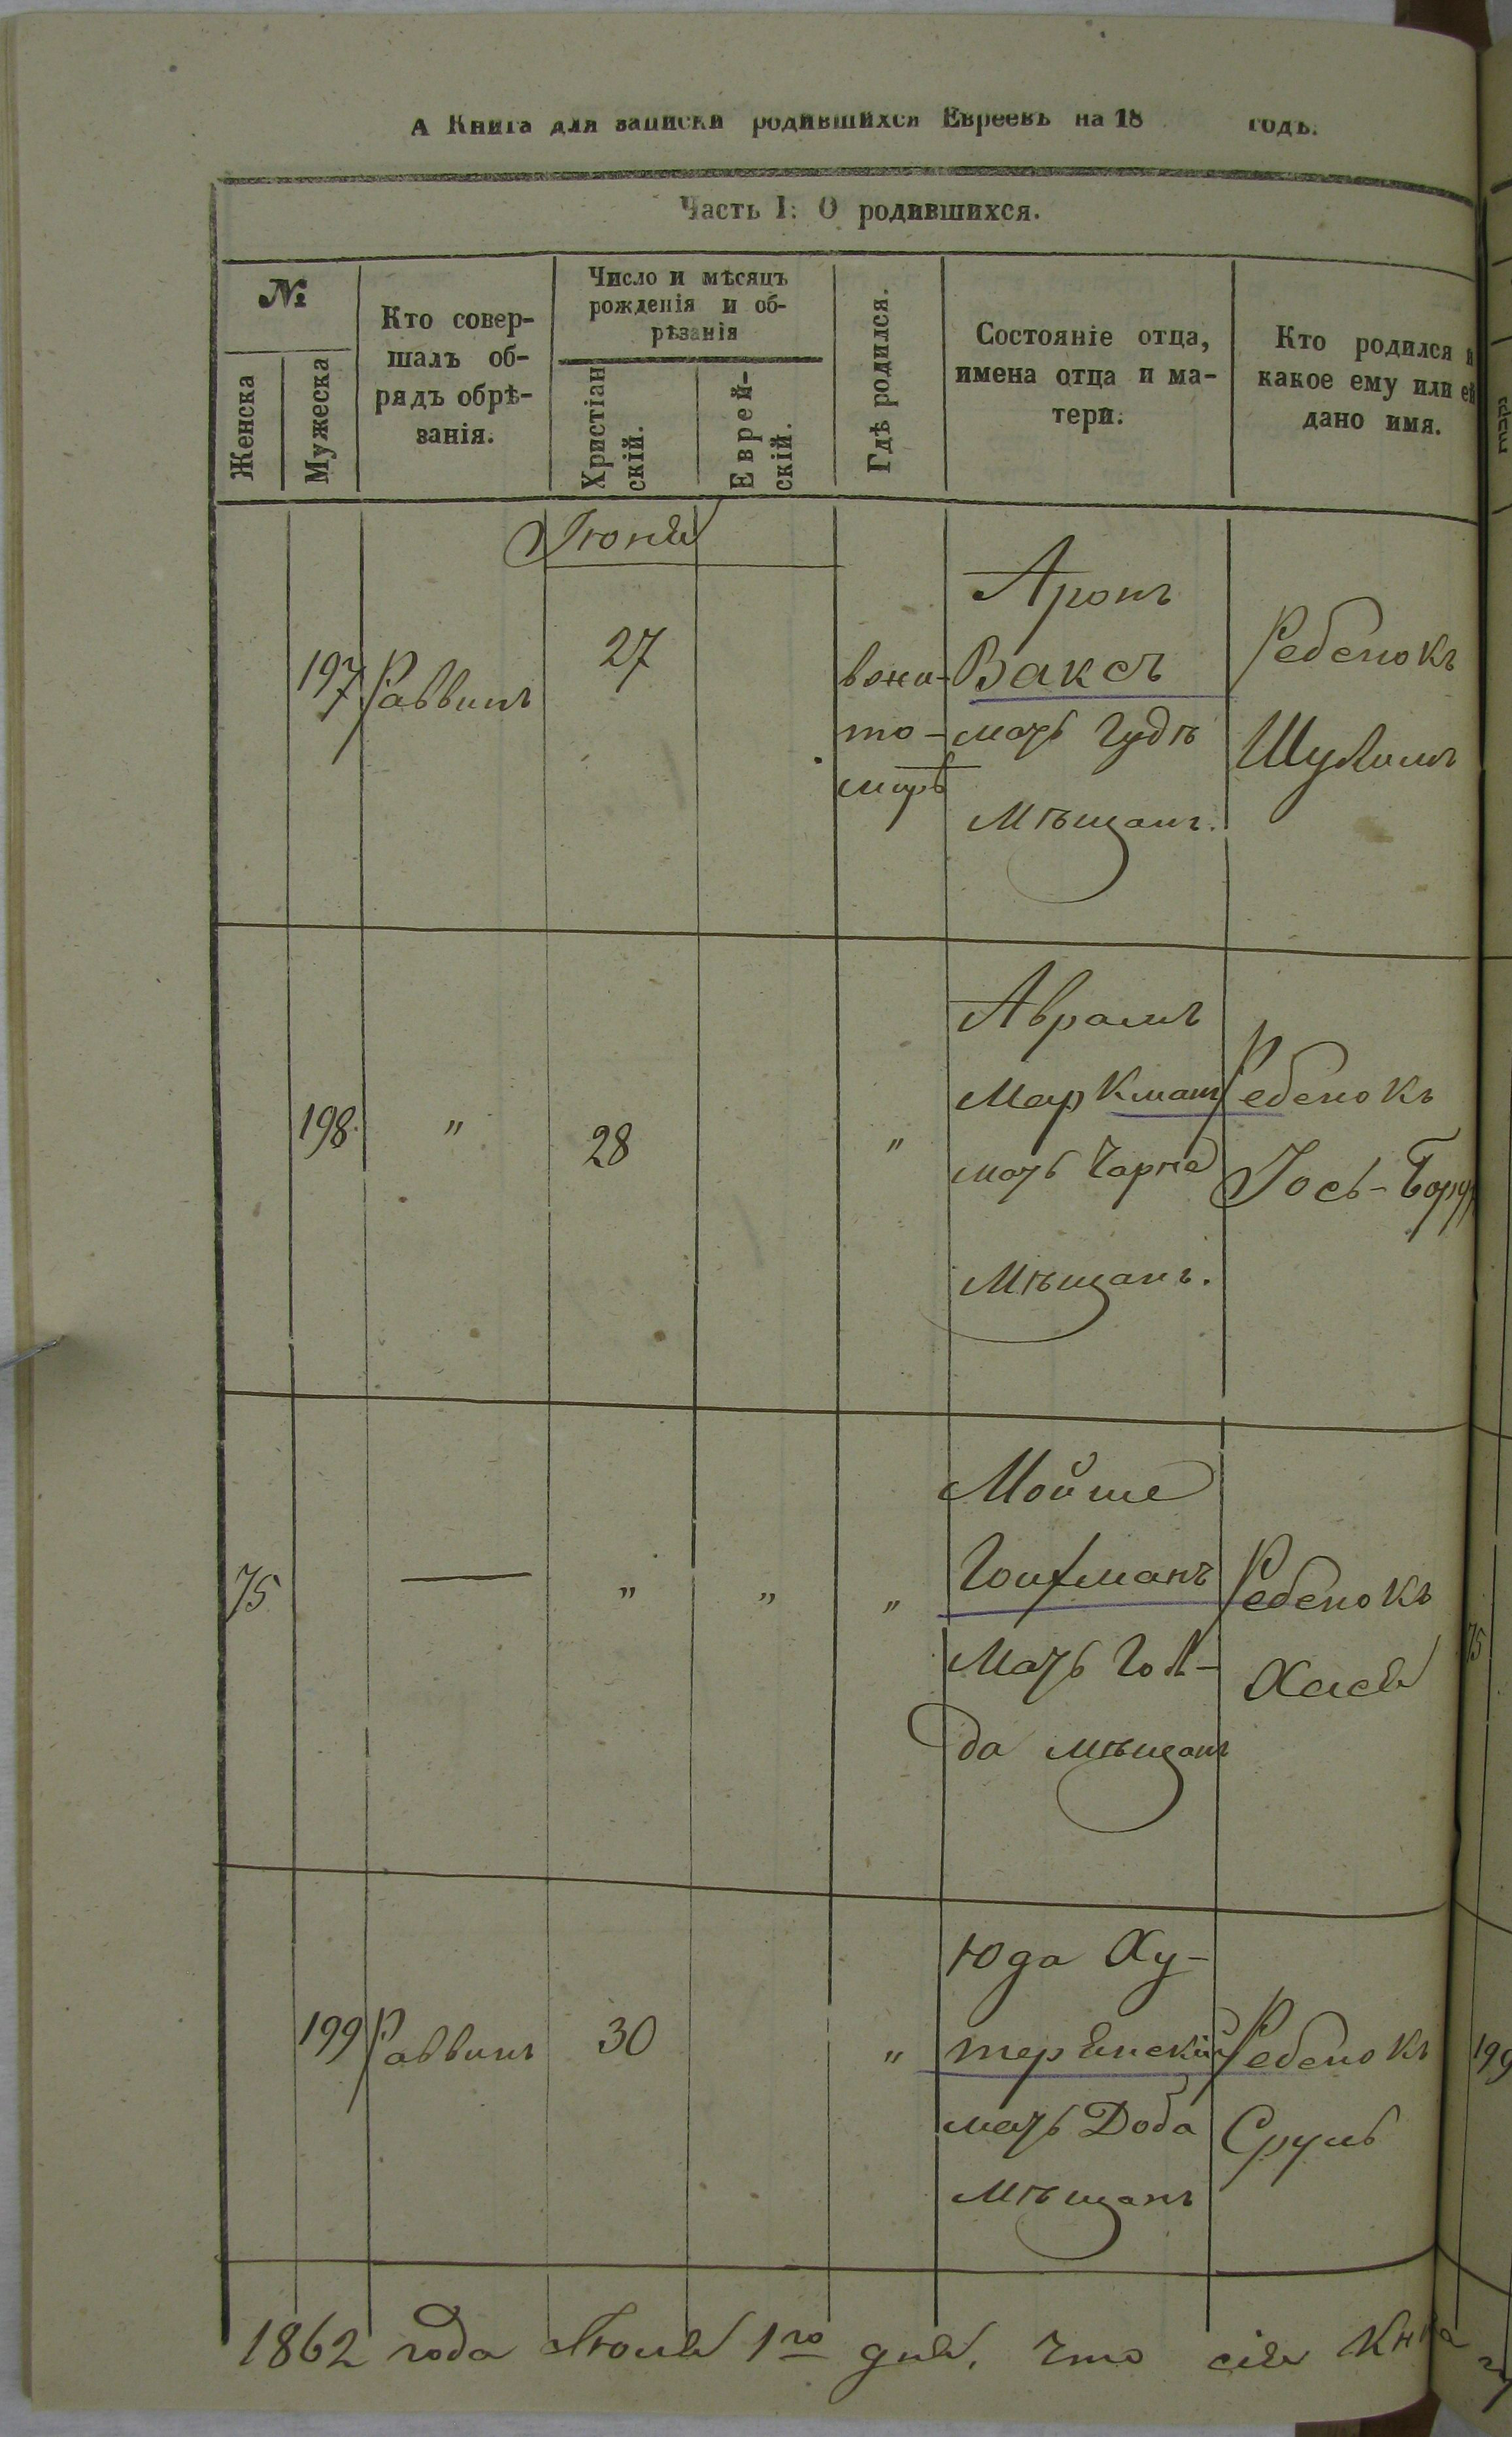 А Книга для записки родившихся Евреевъ на 18 годъ.
Часть I: О родившихся.
№
Женска
Мужеска
Кто совер-
шалъ об-
рядъ обрѣ-
занія.
Число и мѣсяцъ
рожденія и об-
рѣзанія
Христіан
скій.
Еврей-
скій.
Гдѣ родился.
Состояніе отца,
имена отца и ма-
тери.
Кто родился и
какое ему или ей
дано имя.
Іюня
197
Раввинъ
27
в жи-
то-
мирѣ
Аронъ
Ваксъ
мать Гудѣ
Мѣщанъ.
Ребенокъ
Шулимъ
198.
"
28
"
Аврамъ
Маркманъ
мать Чарна
Мѣщанъ.
Ребенокъ
Іось-Борух
75
—
"
"
"
Мойше
Гоифманъ
Мать Гол-
да мѣщанъ
Ребенокъ
Хася
75
199
Раввинъ
30
"
Юда Ху-
терянскій
мать Доба
Мѣщанъ
Ребенокъ
Сруль
199
1862 года Іюля 1го дня, что сія Книга